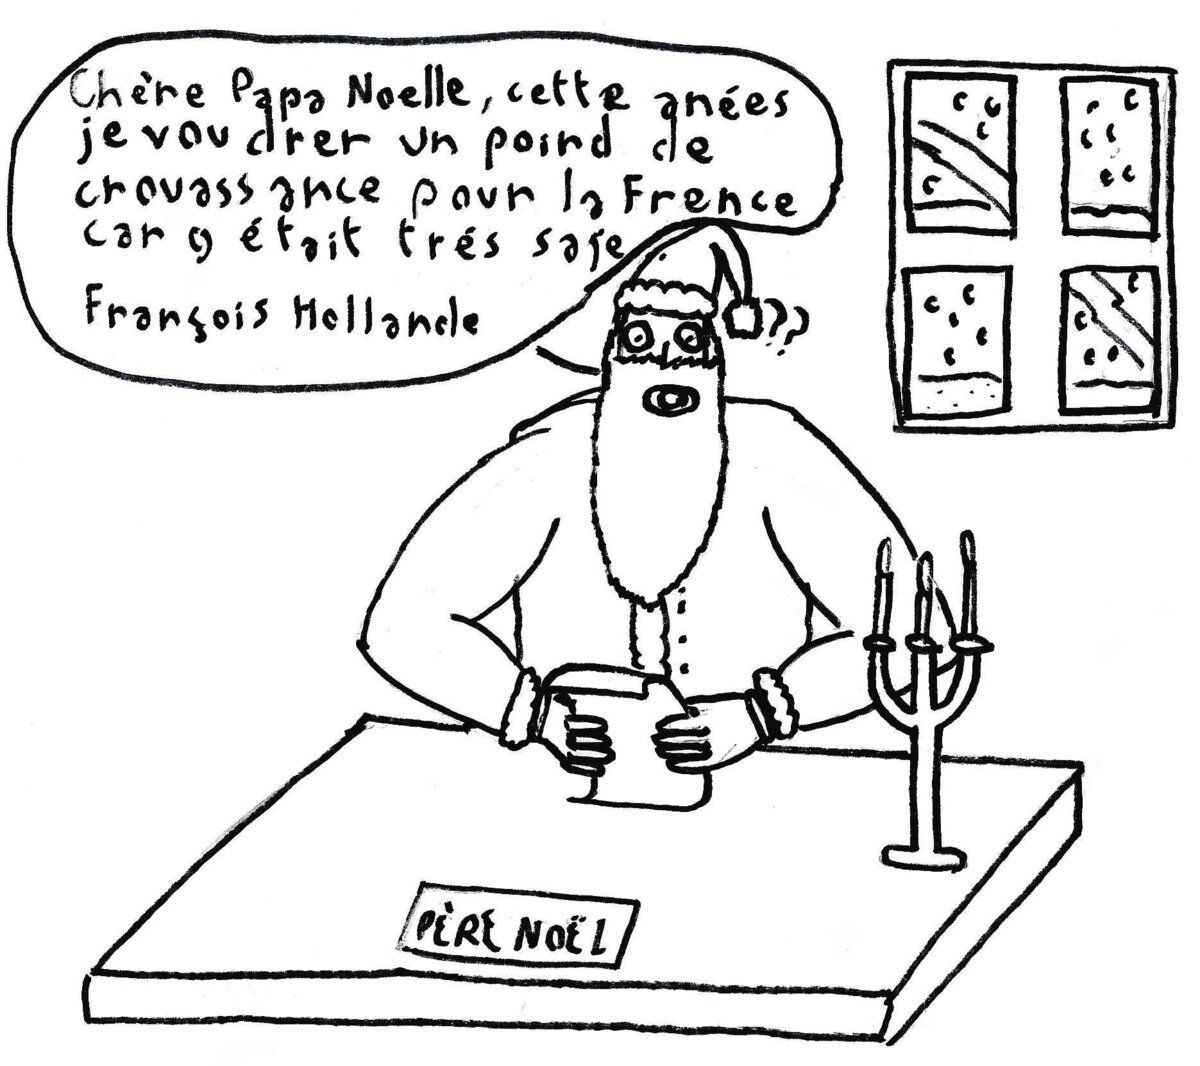 Chère Papa Noelle, cette anées
je vou drer un poind de
crouassance pour la Frence
car g était trés saje
François Hollande
??
PÈRE NOËL